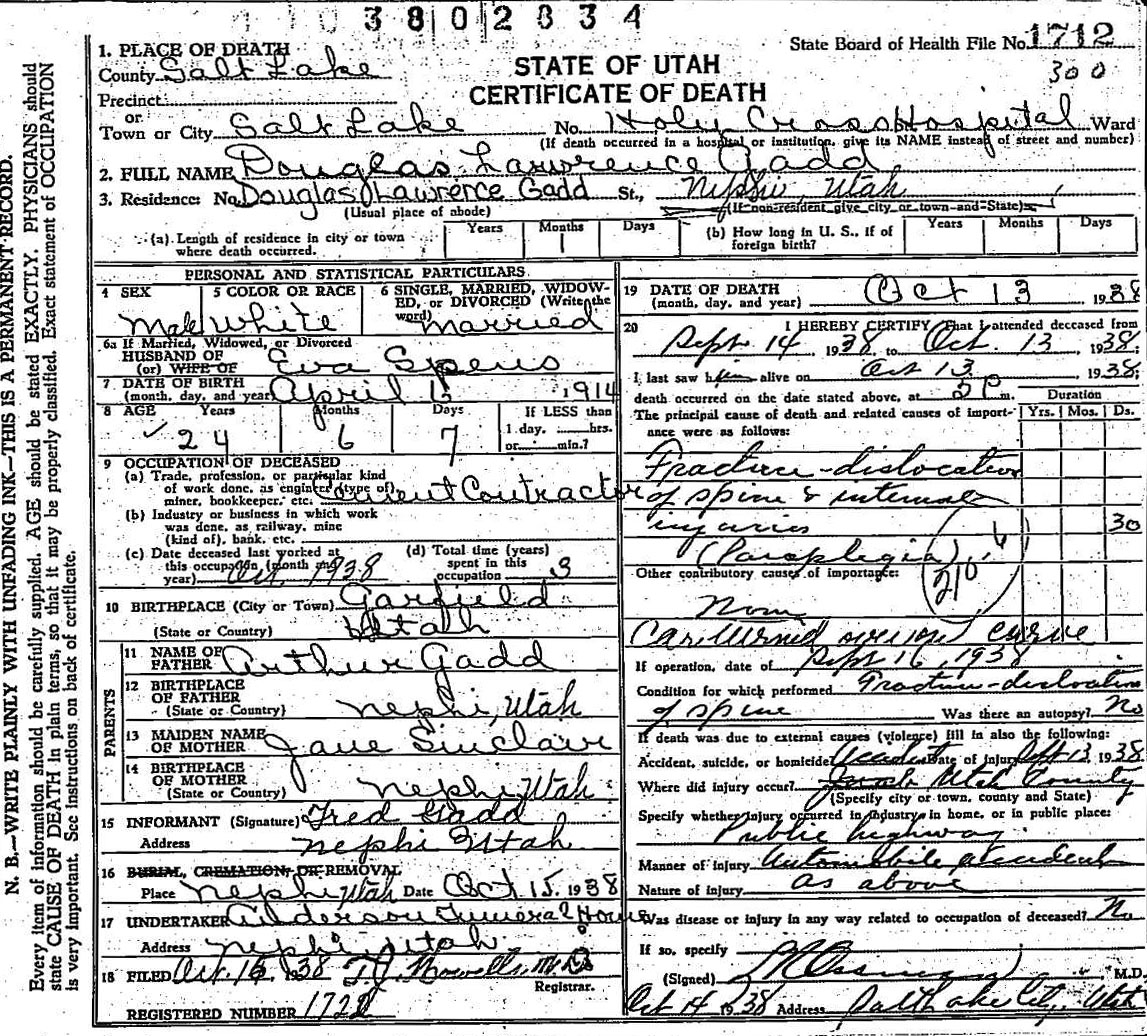 3802834
State Board of Health File No. 1712
300
1. PLACE OF DEATH
County Salt Lake
STATE OF UTAH
CERTIFICATE OF DEATH
Precinct
or
Town or City Salt Lake No. Holy Cross Hospital Ward
(If death occurred in a hospital or institution, give its NAME instead of street and number)
2. FULL NAME Douglas Lawrence Gadd
3. Residence: No. Douglas Lawrence Gadd St., Nephi, Utah
(Usual place of abode) (If non-resident give city or town and State)
(a) Length of residence in city or town where death occurred. Years Months 1 Days
(b) How long in U. S., if of foreign birth? Years Months Days
PERSONAL AND STATISTICAL PARTICULARS
4 SEX 5 COLOR OR RACE 6 SINGLE, MARRIED, WIDOW-
ED, or DIVORCED (Write the
word)
Male White Married
6a If Married, Widowed, or Divorced
HUSBAND OF
(or) WIFE OF Eva
7 DATE OF BIRTH
(month, day, and year) April 1914
8 AGE Years Months Days If LESS than
24 6 7 1 day, hrs.
or min.?
9 OCCUPATION OF DECEASED
(a) Trade, profession, or particular kind
of work done, as engineer (type of)
miner, bookkeeper, etc. Cement Contractor
(b) Industry or business in which work
was done, as railway, mine
(kind of), bank, etc.
(c) Date deceased last worked at
this occupation (month and
year) Oct. 1938
(d) Total time (years)
spent in this
occupation 3
10 BIRTHPLACE (City or Town) Garfield
(State or Country) Utah
PARENTS
11 NAME OF
FATHER Arthur Gadd
12 BIRTHPLACE
OF FATHER
(State or Country) Nephi, Utah
13 MAIDEN NAME
OF MOTHER Jane Sinclair
14 BIRTHPLACE
OF MOTHER
(State or Country) Nephi, Utah
15 INFORMANT (Signature) Fred Gadd
Address Nephi Utah
16 BURIAL, CREMATION, OR REMOVAL
Place Nephi Utah Date Oct 15, 1938
17 UNDERTAKER Anderson Funeral Home
Address Nephi, Utah
18 FILED Oct. 15 1938 T.J. Howells, M.D.
Registrar.
REGISTERED NUMBER 1728
19 DATE OF DEATH
(month, day, and year) Oct 13 1938
20 I HEREBY CERTIFY That I attended deceased from
Sept. 14 1938 to Oct. 13, 1938,
I last saw him alive on Oct 13 1938,
death occurred on the date stated above, at 2 P m.
The principal cause of death and related causes of import-
ance were as follows:
Duration
Yrs. Mos. Ds.
Fracture-dislocation
of spine & internal
injuries 30
(Paraplegia)
210
Other contributory causes of importance:
None
Car turned over on curve
If operation, date of Sept 16, 1938
Condition for which performed Fracture-dislocation
of spine Was there an autopsy? No
If death was due to external causes (violence) fill in also the following:
Accident, suicide, or homicide Accident Date of injury Sept 13 1938
Where did injury occur? Utah County
(Specify city or town, county and State)
Specify whether injury occurred in industry, in home, or in public place:
Public highway
Manner of injury Automobile accident
Nature of injury as above
Was disease or injury in any way related to occupation of deceased? No
If so, specify
(Signed) M.D.
Oct 14 1938 Address Salt Lake City, Utah
N. B.—WRITE PLAINLY WITH UNFADING INK—THIS IS A PERMANENT RECORD.
Every item of information should be carefully supplied. AGE should be stated EXACTLY. PHYSICIANS should
state CAUSE OF DEATH in plain terms, so that it may be properly classified. Exact statement of OCCUPATION
is very important. See instructions on back of certificate.